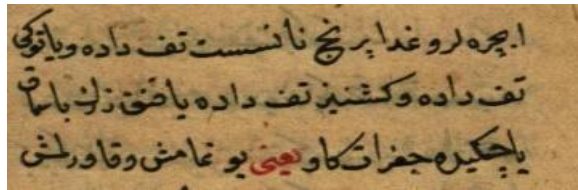 ایچره لر و غدا برنج نانسست تف داده ویاتوکی
تف داده وکشنیز تف داده یا فتق زلن باسماق
یاچکیده جغرات کاو یعنی یو غامش وقاورلمش